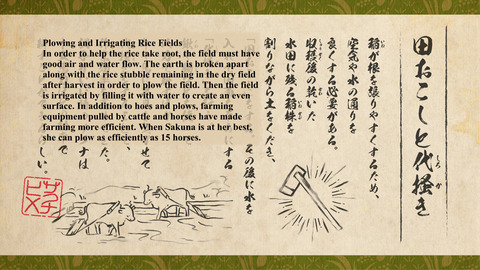 Plowing and Irrigating Rice Fields
In order to help the rice take root, the field must have
good air and water flow. The earth is broken apart
along with the rice stubble remaining in the dry field
after harvest in order to plow the field. Then the field
is irrigated by filling it with water to create an even
surface. In addition to hoes and plows, farming
equipment pulled by cattle and horses have made
farming more efficient. When Sakuna is at her best,
she can plow as efficiently as 15 horses.
田おこしと代掻き
しろか
稲が根を張りやすくするため、
空気や水の通りを
良くする必要がある。
収穫後の乾いた
水田に残る稲株を
割りながら土をくだき、
その後に水を
する
せて
ナは
で
しい。